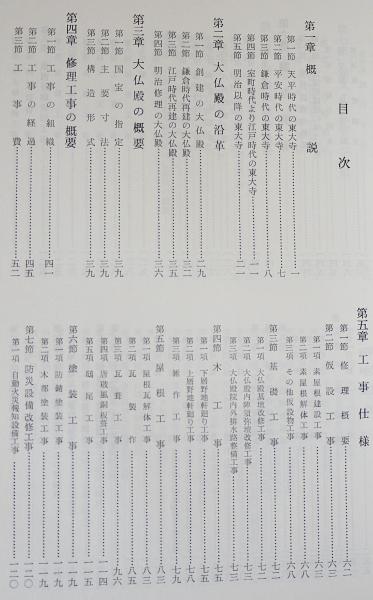 目次
第一章 概説
第一節 天平時代の東大寺……一
第二節 平安時代の東大寺……七
第三節 鎌倉時代の東大寺……八
第四節 室町時代より江戸時代の東大寺……一一
第五節 明治以降の東大寺……二一
第二章 大仏殿の沿革
第一節 創建の大仏殿……二九
第二節 鎌倉時代再建の大仏殿……三二
第三節 江戸時代再建の大仏殿……三五
第四節 明治修理の大仏殿……三六
第三章 大仏殿の概要
第一節 国宝の指定……三九
第二節 主要寸法……三九
第三節 構造形式……三九
第四章 修理工事の概要
第一節 工事の組織……四一
第二節 工事の経過……四五
第三節 工事費……五二
第五章 工事仕様
第一節 修理概要……六二
第二節 仮設工事……六三
第一項 素屋根建設工事……六三
第二項 素屋根解体工事……六八
第三項 その他仮設物工事……六八
第三節 基礎工事……七二
第一項 大仏殿基壇改修工事……七二
第二項 大仏殿内須弥壇改修工事……七三
第三項 大仏殿院内外排水路整備工事……七三
第四節 木工事……七五
第一項 下層野地軒廻り工事……七五
第二項 上層野地軒廻り工事……七七
第三項 雑作工事……七九
第五節 屋根工事……八三
第一項 屋根瓦解体工事……八三
第二項 瓦製作……八五
第三項 瓦葺工事……九六
第四項 唐破風銅板葺工事……一一四
第五項 鴟尾工事……一一五
第六節 塗装工事……一一九
第一項 防錆塗装工事……一一九
第二項 木部塗装工事……一一九
第七節 防災設備改修工事……一二〇
第一項 自動火災報知設備工事……一二〇